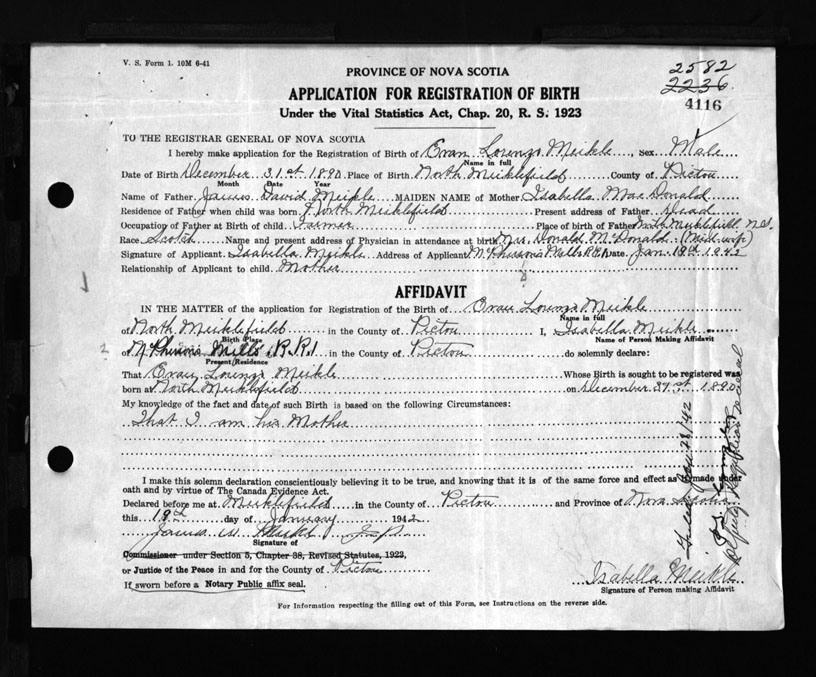 V. S. Form 1. 10M 6-41
2582
2236
4116
PROVINCE OF NOVA SCOTIA
APPLICATION FOR REGISTRATION OF BIRTH
Under the Vital Statistics Act, Chap. 20, R. S. 1923
TO THE REGISTRAR GENERAL OF NOVA SCOTIA
I hereby make application for the Registration of Birth of Evan Lorenzo Meikle, Sex Male
Name in full
Date of Birth December 31st 1890 Place of Birth North Meiklefield County of Pictou
Month Date Year
Name of Father James David Meikle MAIDEN NAME of Mother Isabella MacDonald
Residence of Father when child was born North Meiklefield Present address of Father Dead
Occupation of Father at Birth of child Farmer Place of birth of Father North Meiklefield N.S.
Race Scotch Name and present address of Physician in attendance at birth Mrs. Donald McDonald (Midwife)
Signature of Applicant Isabella Meikle Address of Applicant McPhersons Mills RR1 Date Jan. 19th 1942
Relationship of Applicant to child Mother
AFFIDAVIT
IN THE MATTER of the application for Registration of the Birth of Evan Lorenzo Meikle
Name in full
of North Meiklefield in the County of Pictou I, Isabella Meikle
Birth Place Name of Person Making Affidavit
of McPhersons Mills R.R.1 in the County of Pictou do solemnly declare:
Present Residence
That Evan Lorenzo Meikle Whose Birth is sought to be registered was
born at North Meiklefield on December 31st 1890
My knowledge of the fact and date of such Birth is based on the following Circumstances:
That I am his Mother
I make this solemn declaration conscientiously believing it to be true, and knowing that it is of the same force and effect as if made under
oath and by virtue of The Canada Evidence Act.
Declared before me at Meiklefield in the County of Pictou and Province of Nova Scotia
this 19th day of January 1942
James W. Meikle J.P.
Signature of
Commissioner under Section 5, Chapter 38, Revised Statutes, 1923,
or Justice of the Peace in and for the County of Pictou
If sworn before a Notary Public affix seal.
Isabella Meikle
Signature of Person making Affidavit
For Information respecting the filling out of this Form, see Instructions on the reverse side.
Filed Jan 28/42
Deputy Registrar General